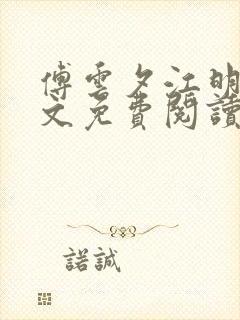 傅雲夕江明
文免費閱讀
諾誠